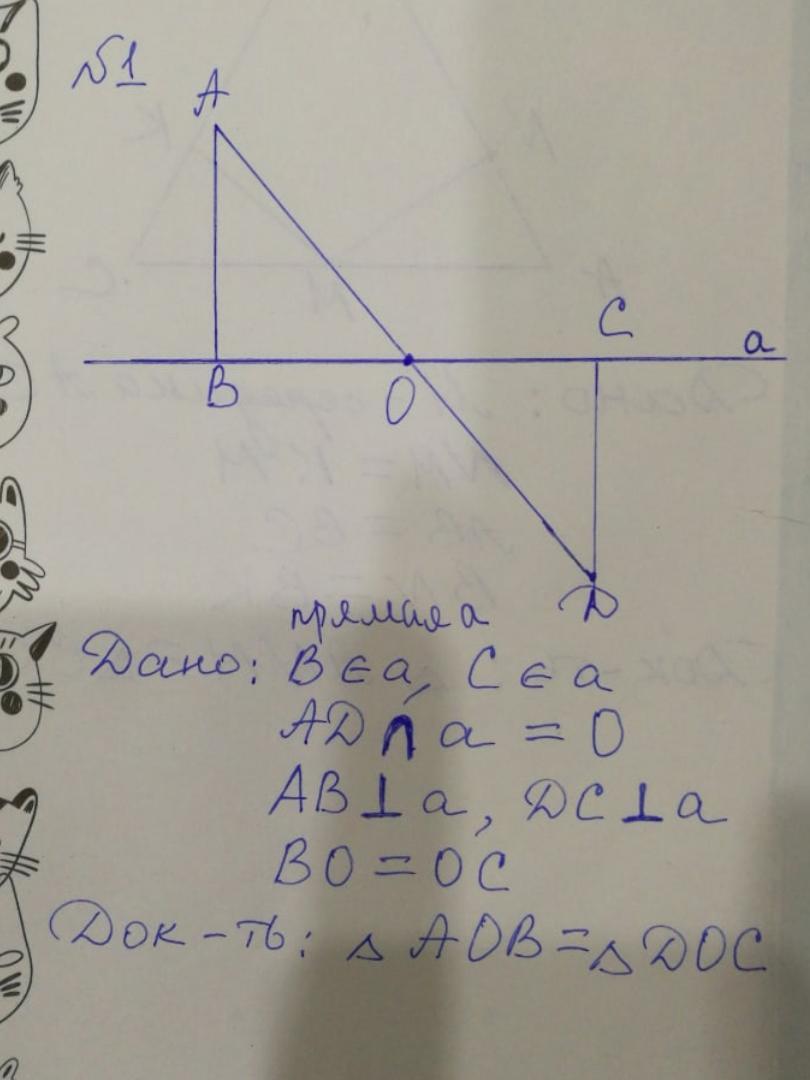 №1
A
B
O
C
a
D
прямая a
Дано: B ∈ a, C ∈ a
AD ∩ a = O
AB ⊥ a, DC ⊥ a
BO = OC
Док-ть: △ AOB = △ DOC